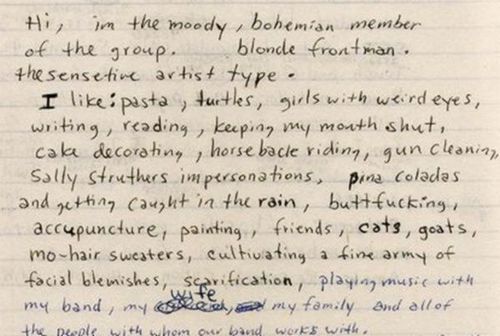 Hi, im the moody, bohemian member
of the group. blonde frontman.
the sensetive artist type.
I like: pasta, turtles, girls with weird eyes,
writing, reading, keeping my mouth shut,
cake decorating, horseback riding, gun cleaning,
Sally Struthers impersonations, pina coladas
and getting caught in the rain, buttfucking,
accupuncture, painting, friends, cats, goats,
mo-hair sweaters, cultivating a fine army of
facial blemishes, scarification, playing music with
my band, my wife my family and all of
the people with whom our band works with.